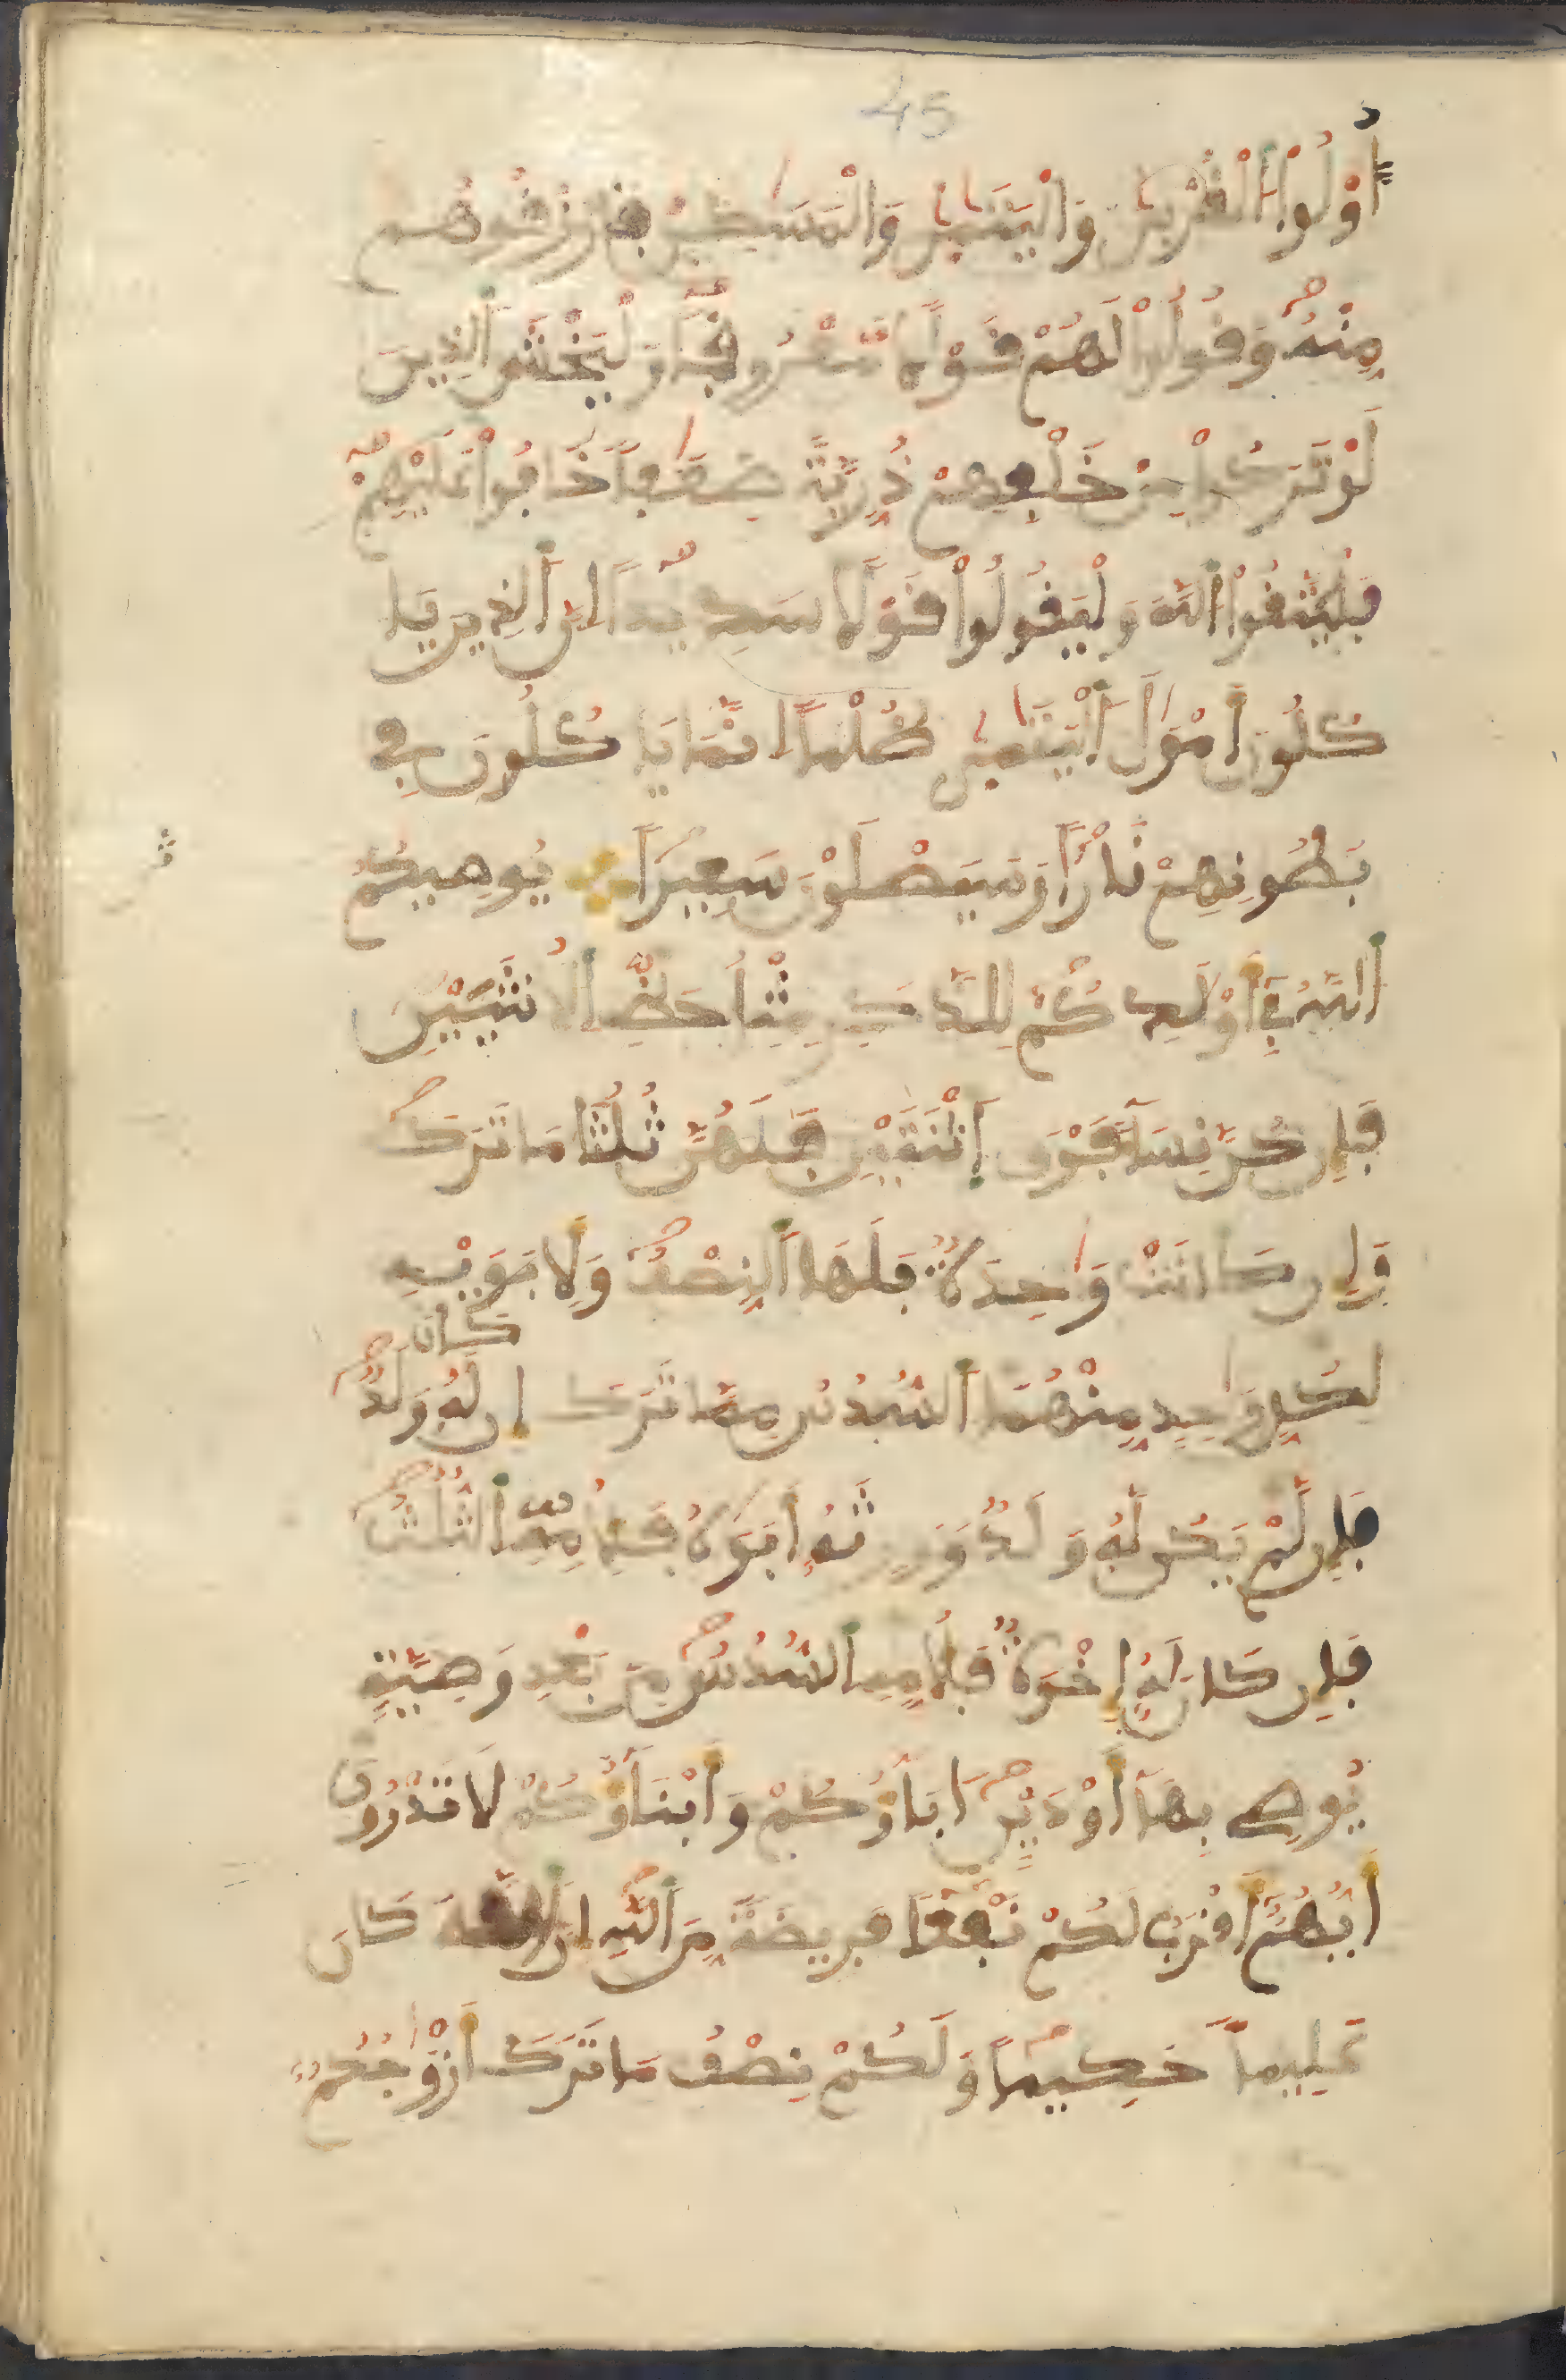 45
أُوْلُواْ اَ۬لْقُرْبَىٰ وَالْيَتَٰمَىٰ وَالْمَسَٰكِينُ فَارْزُقُوهُم
مِّنْهُ وَقُولُواْ لَهُمْ قَوْلًا مَّعْرُوفًا وَلْيَخْشَ اَ۬لذِينَ
لَوْ تَرَكُواْ مِنْ خَلْفِهِمْ ذُرِّيَّةً ضِعَٰفًا خَافُواْ عَلَيْهِمْ
فَلْيَتَّقُواْ اُ۬للَّهَ وَلْيَقُولُواْ قَوْلًا سَدِيدًا اِنَّ اَ۬لذِينَ يَا
كُلُونَ أَمْوَٰلَ اَ۬لْيَتَٰمَىٰ ظُلْمًا اِنَّمَا يَا كُلُونَ فِے
بُطُونِهِمْ نَارًا وَسَيَصْلَوْنَ سَعِيرًا يُوصِيكُمُ
اُ۬للَّهُ فِےٓ أَوْلَٰدِكُمْ لِلذَّكَرِ مِثْلُ حَظِّ اِ۬لُانثَيَيْنِ
فَإِن كُنَّ نِسَآءً فَوْقَ اَ۪ثْنَتَيْنِ فَلَهُنَّ ثُلُثَا مَا تَرَكَ
وَإِن كَانَتْ وَٰحِدَةٌ فَلَهَا اَ۬لنِّصْفُ وَلِأَبَوَيْهِ
كان
لِكُلِّ وَٰحِدٍ مِّنْهُمَا اَ۬لسُّدُسُ مِمَّا تَرَكَ إِن لَّهُۥ وَلَدٌ
فَإِن لَّمْ يَكُن لَّهُۥ وَلَدٌ وَوَرِثَهُۥٓ أَبَوَاهُ فَلِأُمِّهِ اِ۬لثُّلُثُ
فَإِن كَانَ لَهُۥٓ إِخْوَةٌ فَلِأُمِّهِ اِ۬لسُّدُسُ مِنۢ بَعْدِ وَصِيَّةٍ
يُوصِے بِهَآ أَوْ دَيْنٍ اٰبَآؤُكُمْ وَأَبْنَآؤُكُمْ لَا تَدْرُونَ
أَيُّهُمُۥٓ أَقْرَبُ لَكُمْ نَفْعًا فَرِيضَةً مِّنَ اَ۬للَّهِ إِنَّ اَ۬للَّهَ كَانَ
عَلِيمًا حَكِيمًا وَلَكُمْ نِصْفُ مَا تَرَكَ أَزْوَٰجُكُمُۥٓ